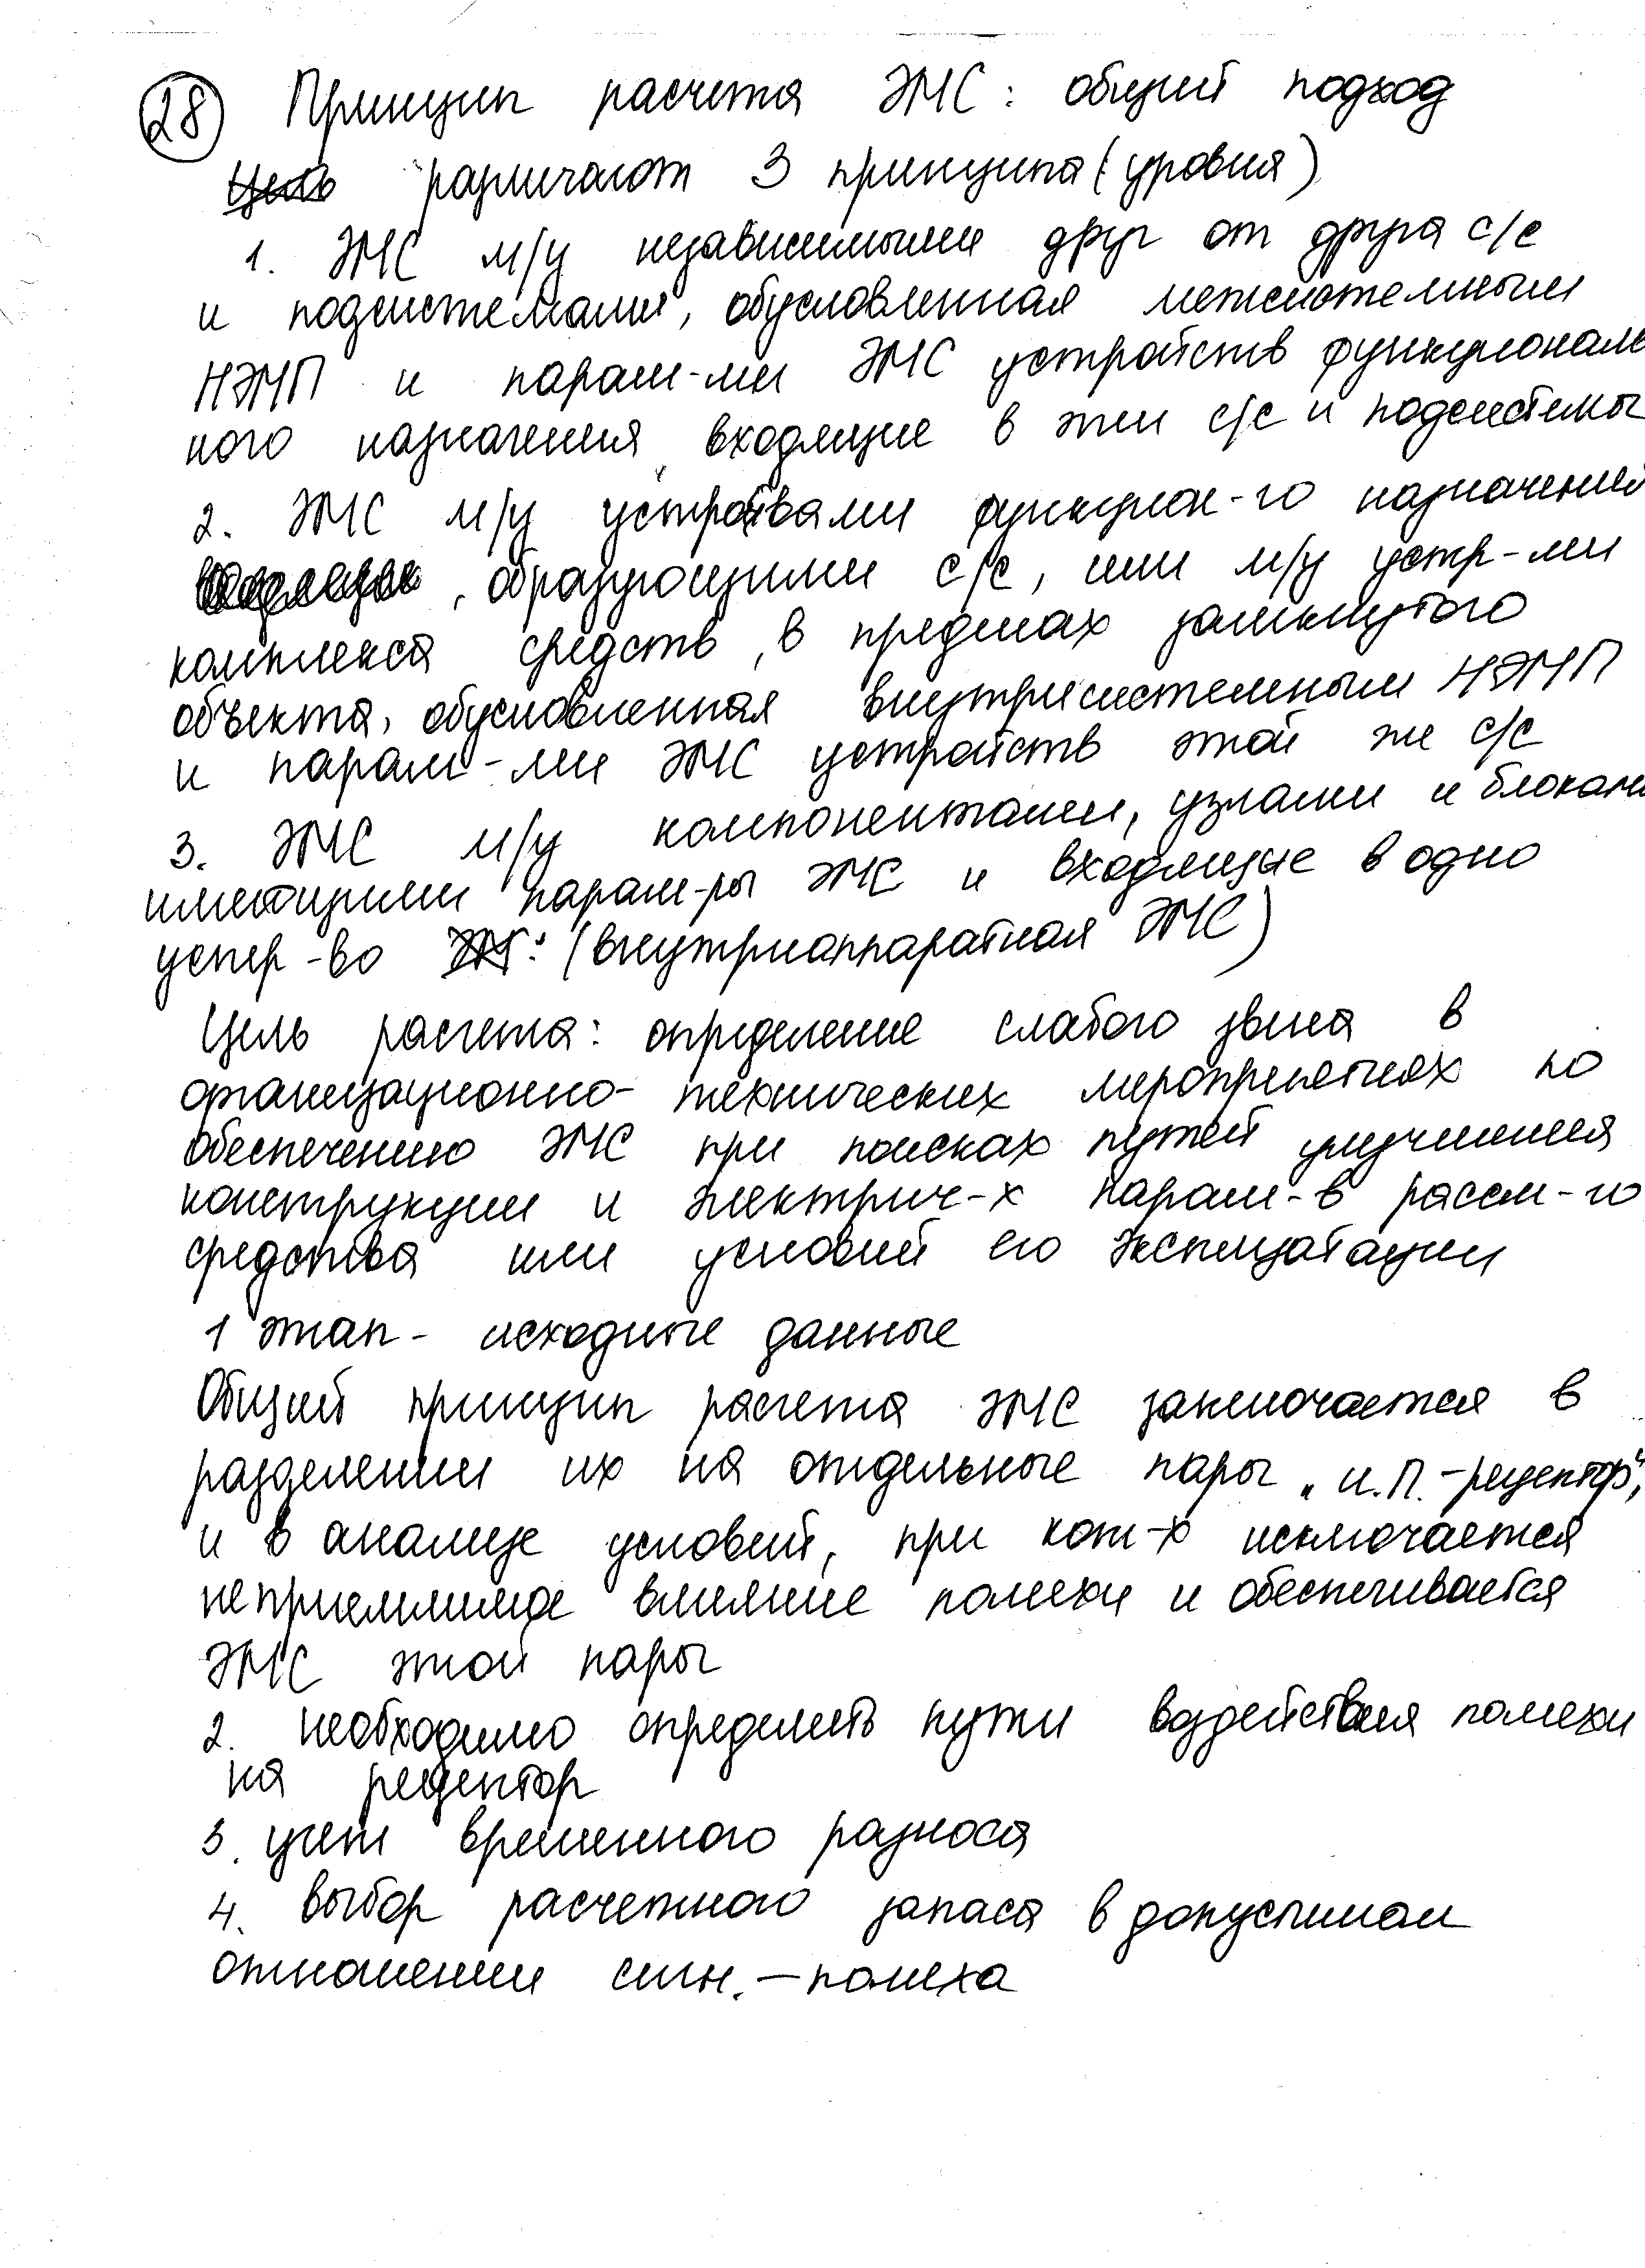 28 Принцип расчета ЭМС: общий подход
Цель различают 3 принципа (уровня)
1. ЭМС м/у независимыми друг от друга с/с
и подсистемами, обусловленная межсистемным
НЭМП и парам-ми ЭМС устройств функциональ
ного назначения, входящие в эти с/с и подсистемы
2. ЭМС м/у устройствами функцион-го назначений
, образующими с/с, или м/у устр-ми
комплекса средств, в пределах замкнутого
объекта, обусловленная внутрисистемным НЭМП
и парам-ми ЭМС устройств этой же с/с
3. ЭМС м/у компонентами, узлами и блоками
имеющими парам-ры ЭМС и входящие в одно
устр-во (внутриаппаратная ЭМС)
Цель расчета: определение слабого звена в
организационно-технических мероприятиях по
обеспечению ЭМС при поисках путей улучшения
конструкции и электрич-х парам-в рассм-го
средства или условий его эксплуатации
1 этап - исходные данные
Общий принцип расчета ЭМС заключается в
разделении их на отдельные пары „И.П.-рецептор“,
и в анализе условий, при кот-х исключается
неприемлимое влияние помехи и обеспечивается
ЭМС этой пары
2. необходимо определить пути воздействия помехи
на рецептор
3. учет временного разноса
4. выбор расчетного запаса в допустимом
отношении сигн.-помеха